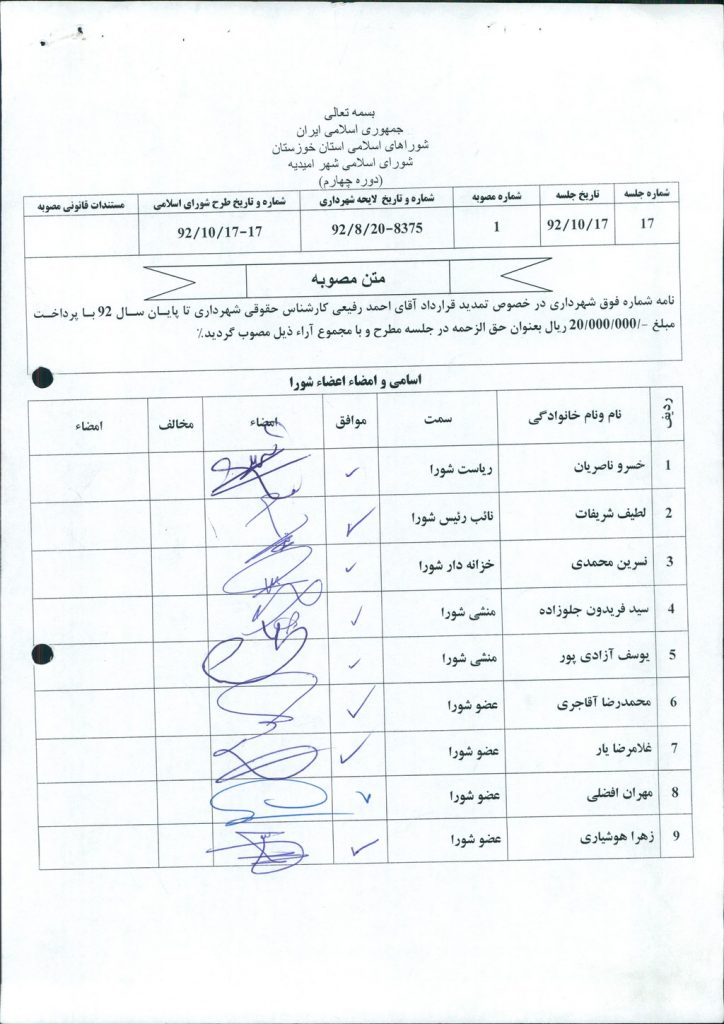 بسمه تعالی
جمهوری اسلامی ایران
شوراهای اسلامی استان خوزستان
شورای اسلامی شهر امیدیه
(دوره چهارم)
شماره جلسه تاریخ جلسه شماره مصوبه شماره و تاریخ لایحه شهرداری شماره و تاریخ طرح شورای اسلامی مستندات قانونی مصوبه
17 92/10/17 1 92/8/20-8375 92/10/17-17
متن مصوبه
نامه شماره فوق شهرداری در خصوص تمدید قرارداد آقای احمد رفیعی کارشناس حقوقی شهرداری تا پایان سال 92 با پرداخت
مبلغ -/20/000/000 ریال بعنوان حق الزحمه در جلسه مطرح و با مجموع آراء ذیل مصوب گردید.٪
اسامی و امضاء اعضاء شورا
ردیف نام ونام خانوادگی سمت موافق امضاء مخالف امضاء
1 خسرو ناصریان ریاست شورا
2 لطیف شریفات نائب رئیس شورا
3 نسرین محمدی خزانه دار شورا
4 سید فریدون جلوزاده منشی شورا
5 یوسف آزادی پور منشی شورا
6 محمدرضا آقاجری عضو شورا
7 غلامرضا یار عضو شورا
8 مهران افضلی عضو شورا
9 زهرا هوشیاری عضو شورا